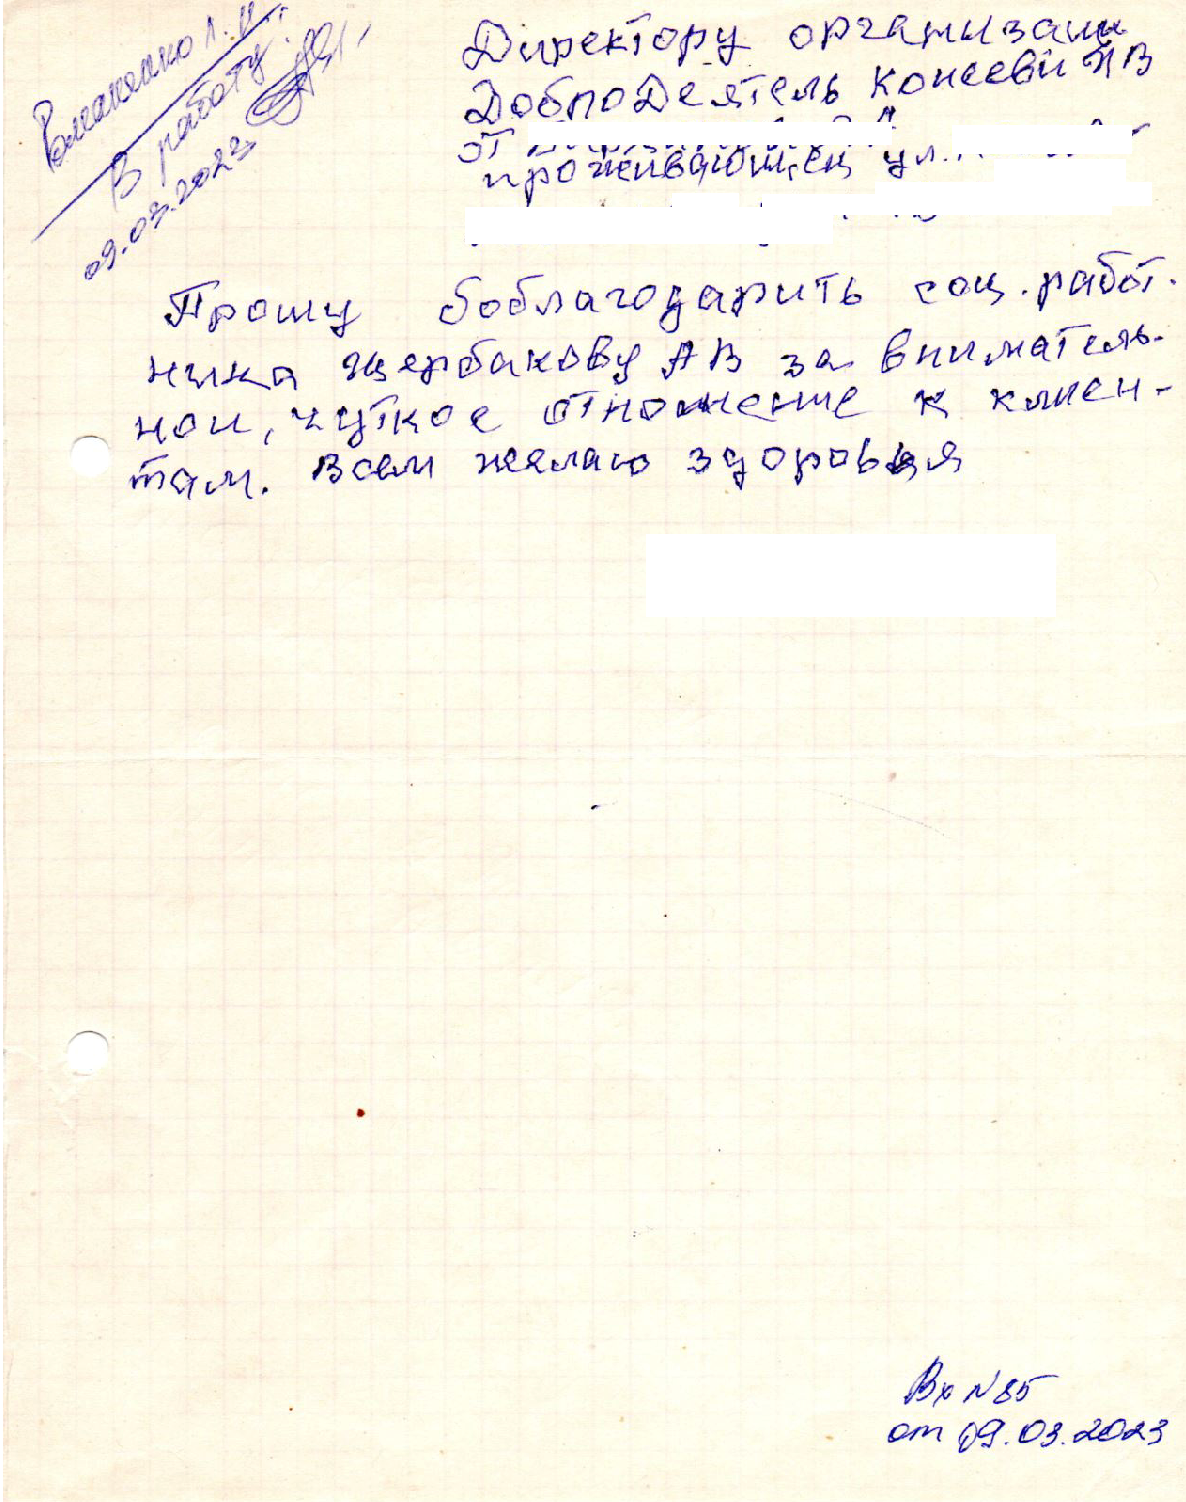 В работу.
09.03.2023
Директору организаци
ДоброДеятель
от
проживающей ул.
Прошу боблагодарить соц. работ.
ника Щербакову АВ за вниматель-
ное, чуткое отношение к клиен-
там. Всем желаю здоровья
Вх N 85
от 09.03.2023